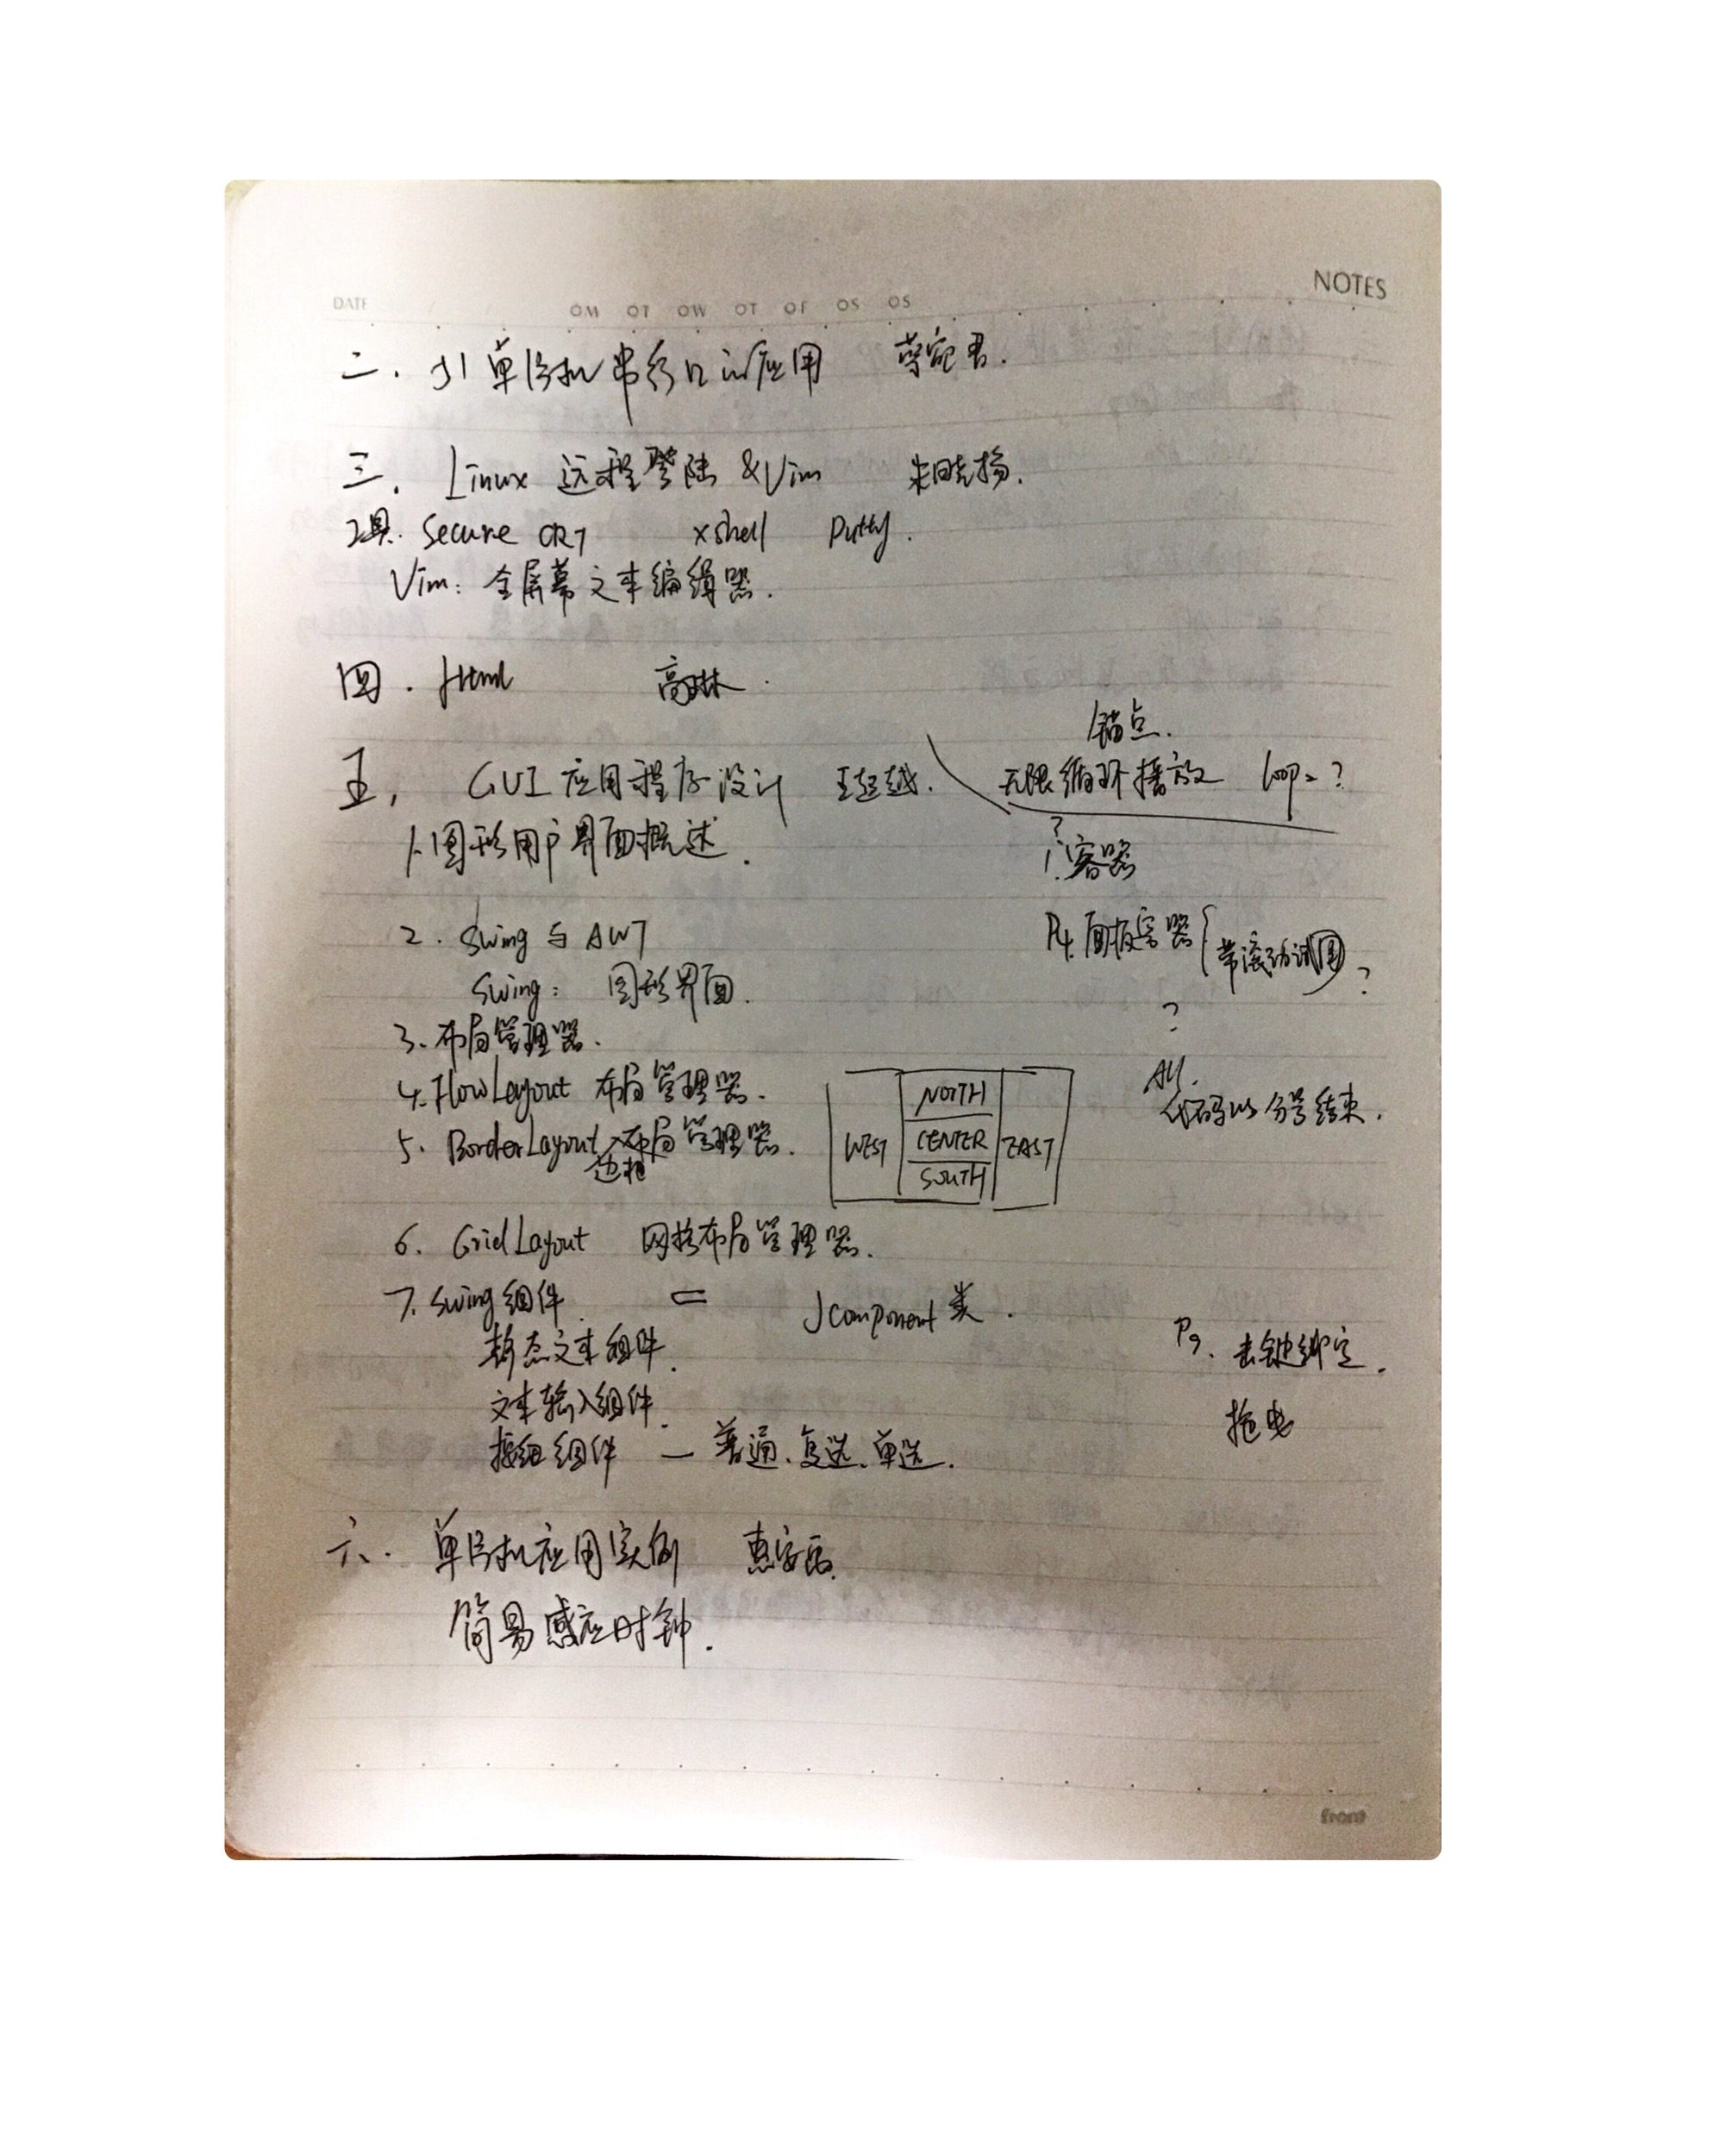 NOTES
DATE OM OT OW OT OF OS OS
二. 51单片机串行口的应用
三. Linux 远程登陆 &Vim 朱晓扬.
工具. Secure CRT xshell Putty.
Vim: 全屏幕文本编辑器.
四. Html 高琳.
锚点.
无限循环播放 loop=?
五, GUI应用程序设计 王超越.
1.图形用户界面概述.
?
1.容器
2. Swing与AWT
Swing: 图形界面.
P4.面板容器{带滚动试图?
?
3.布局管理器.
4.FlowLayout 布局管理器.
5. BorderLayout 边框布局管理器.
NORTH
WEST CENTER EAST
SOUTH
All.
代码以分号结束.
6. GridLayout 网格布局管理器.
7. Swing组件. = Jcomponent类.
静态文本组件.
文本输入组件.
按钮组件 — 普通、复选、单选.
P9. 击键绑定.
拖曳
六. 单片机应用实例
简易感应时钟.
front